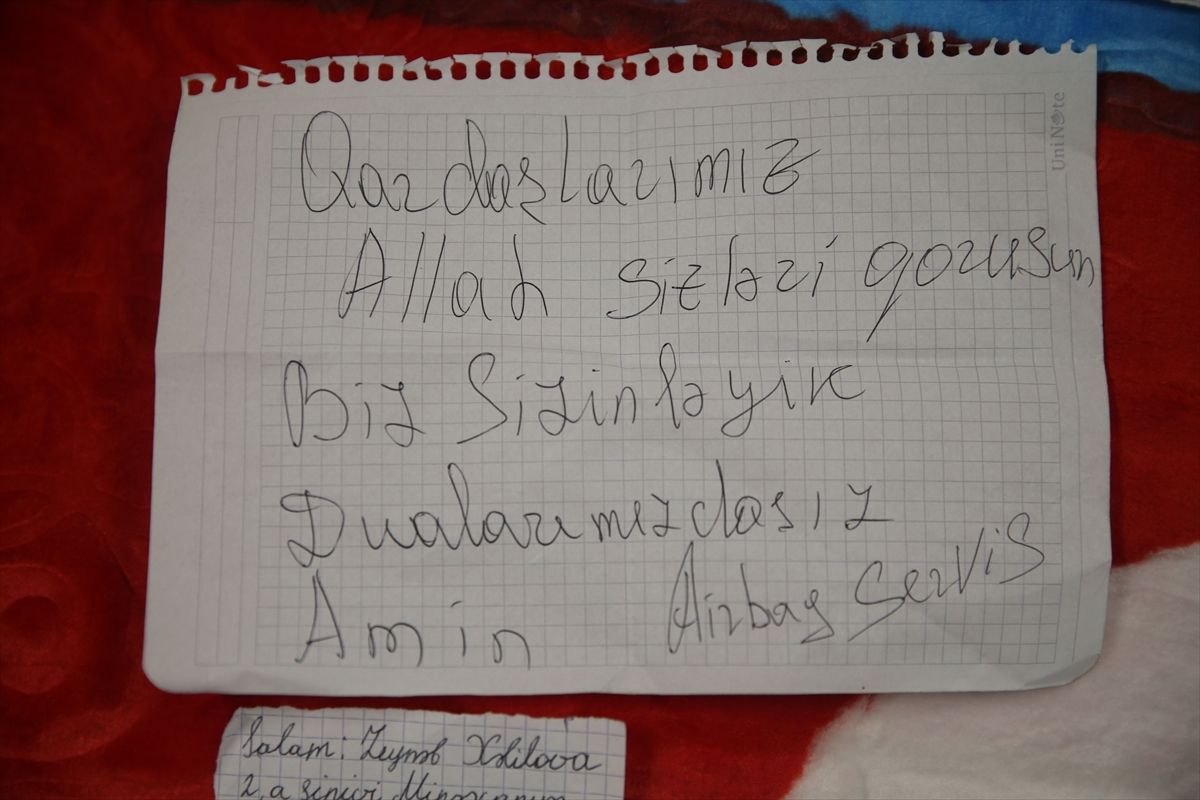 Qardaşlarımız
Allah sizləri qorusun
Biz Sizinləyik
Dualarımızdasız
Amin Airbag Servis
UniNote
Salam: Zeynəb Xəlilova
2, a sinivi